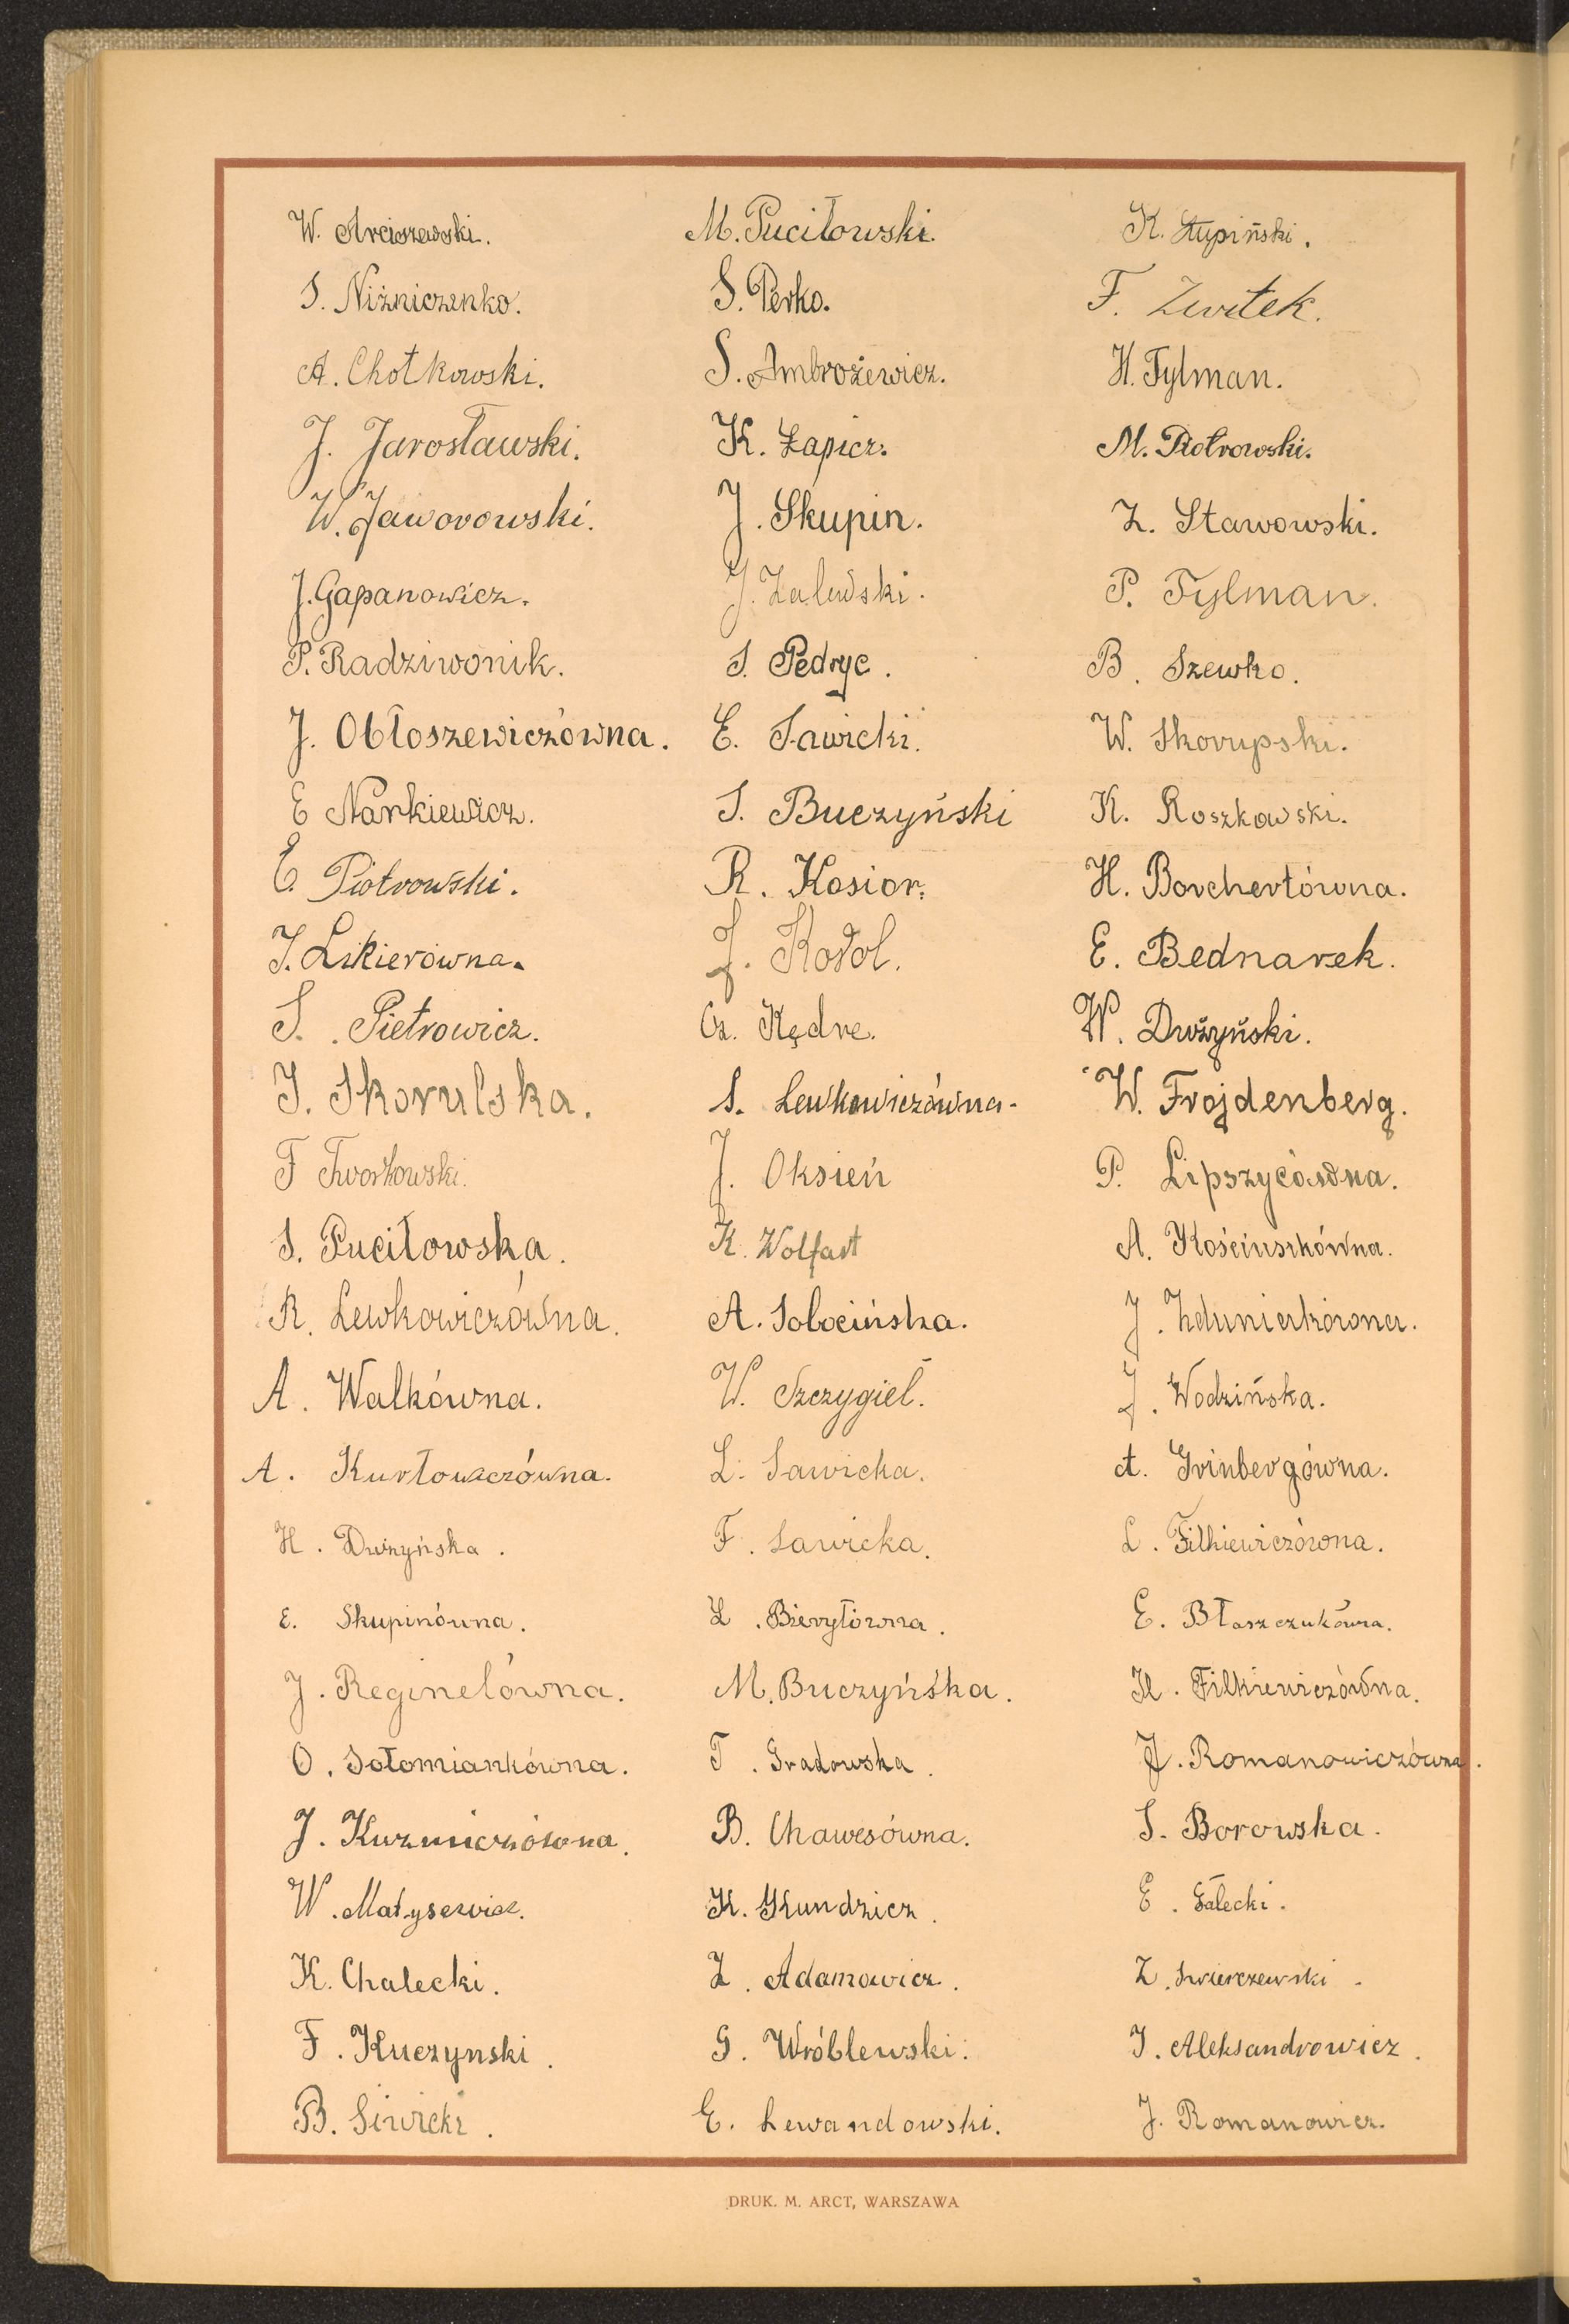 W. Arciszewski.
S. Niżniczenko.
A. Chotkowski.
J. Jarosławski.
W. Jaworowski.
J. Gapanowicz.
P. Radziwonik.
J. Obłoszewiczówna.
E Narkiewicz.
E. Piotrowski.
J. Likierówna.
S. Pietrowicz.
J. Skorulska.
F
S. Puciłowska.
R. Lewkowiczówna.
A. Walkówna.
A. Kurłowiczówna.
H. Dwżyńska.
E. Skupinówna.
J. Reginelówna.
O. Sołomiankówna.
J. Kuzmiczówna.
W. Matysewicz.
K. Chalecki.
F. Kuczynski.
B. Siwicki.
M. Puciłowski.
S. Perko.
S. Ambrożewicz.
K. Łapicz.
J. Skupin.
J. Zalewski.
S. Pedryc.
E. Sawicki.
S. Buczyński
R. Kosior.
J.
Cz. Kędre.
S. Lewkowiczówna.
J. Oksień
K. Wolfart
A. Sobocińska.
W. Szczygieł.
L. Sawicka.
F. Sawicka.
L. Bieryłówna.
M. Buczyńska.
T. Gradowska.
B. Chawesówna.
K. Kundzicz.
Z. Adamowicz.
G. Wróblewski.
E. Lewandowski.
K. Stupiński.
F. Zwitek.
H. Tylman.
M. Piotrowski.
Z. Stawowski.
P. Tylman.
B. Szewko.
W. Skorupski.
K. Roszkowski.
H. Borchertówna.
E. Bednarek.
W. Dwżyński.
W. Frojdenberg.
P. Lipszycówna.
A. Kościuszkówna.
J. Zduniakówna.
J. Wodzińska.
A. Grinbergówna.
L. Filkiewiczówna.
E. Błaszczukówna.
H. Filkiewiczówna.
J. Romanowiczówna.
S. Borowska.
E. Gałecki.
Z. Świerczewski.
J. Aleksandrowicz.
J. Romanowicz.
DRUK. M. ARCT, WARSZAWA